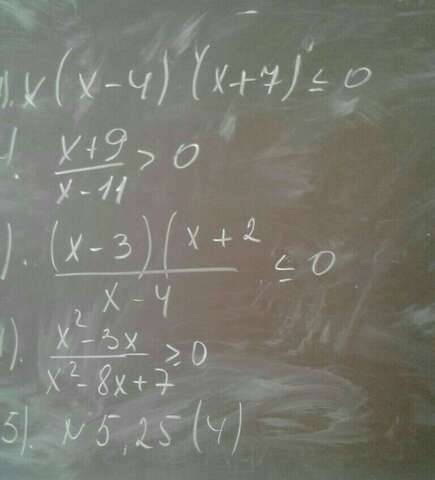 ). x(x-4)(x+7) ≤ 0
. x+9 / x-11 > 0
). (x-3)(x+2 / x-4 ≤ 0
). x²-3x / x²-8x+7 ≥ 0
5). N 5,25(4)